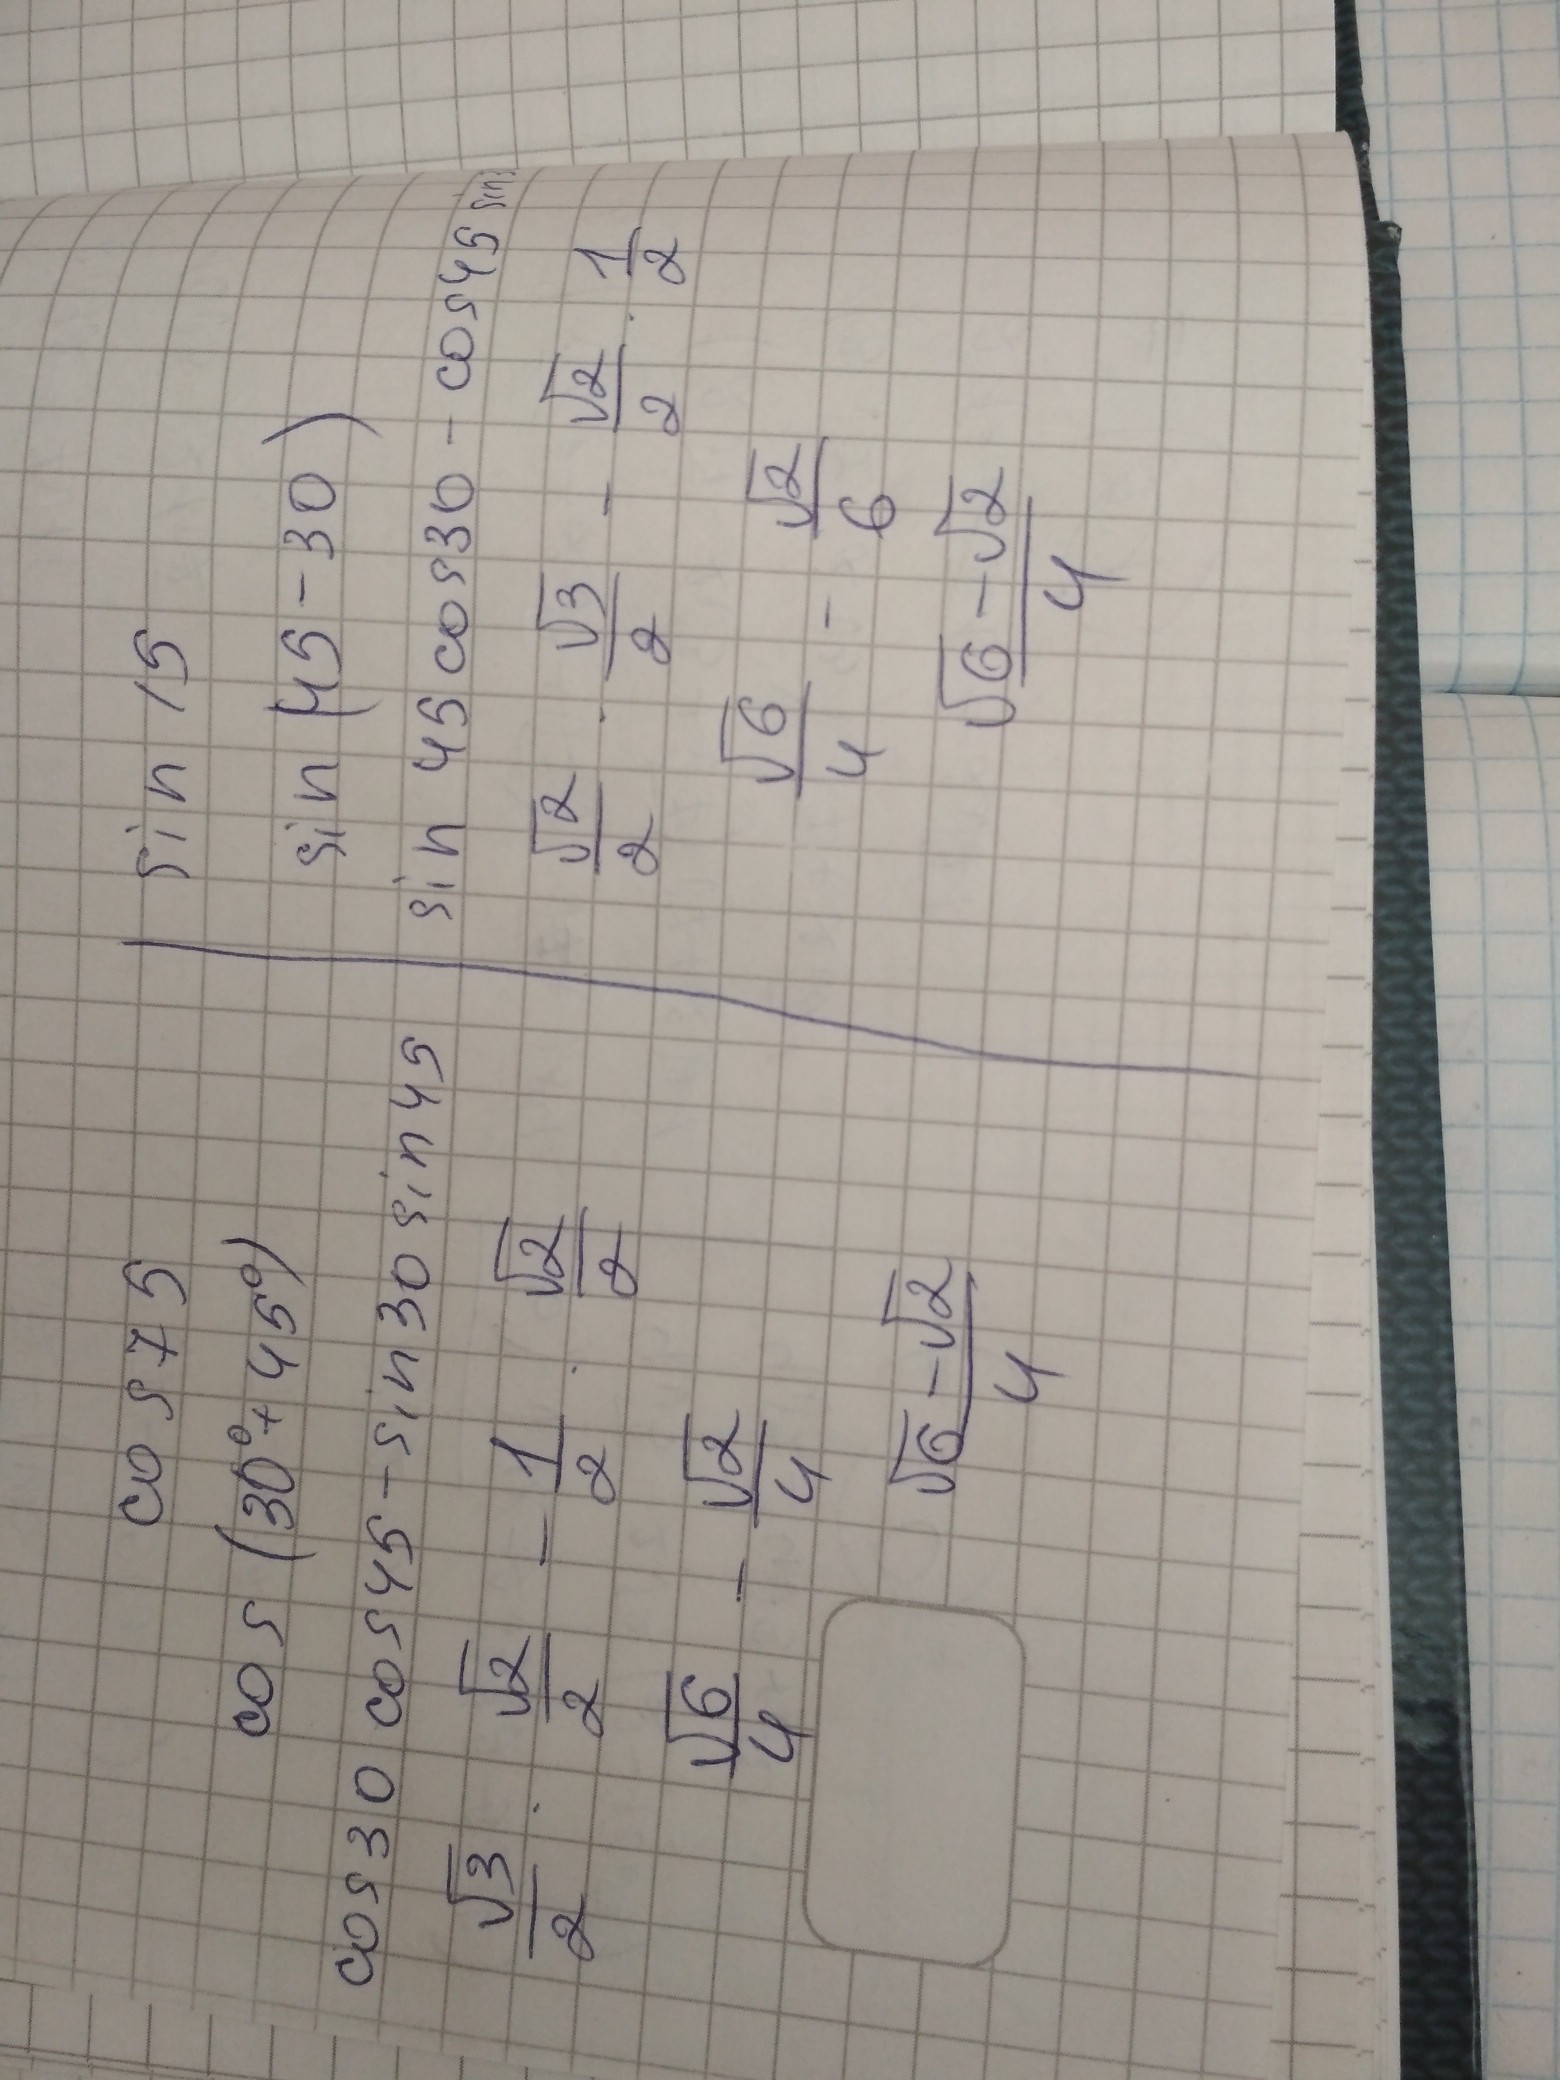 cos 75
cos (30°+45°)
cos30 cos45-sin30sin45
√3/2 · √2/2 - 1/2 · √2/2
√6/4 - √2/4
√6-√2/4
sin 15
sin (45-30)
sin 45cos30-cos45 sin3
√2/2 · √3/2 - √2/2 · 1/2
√6/4 - √2/6
√6-√2/4